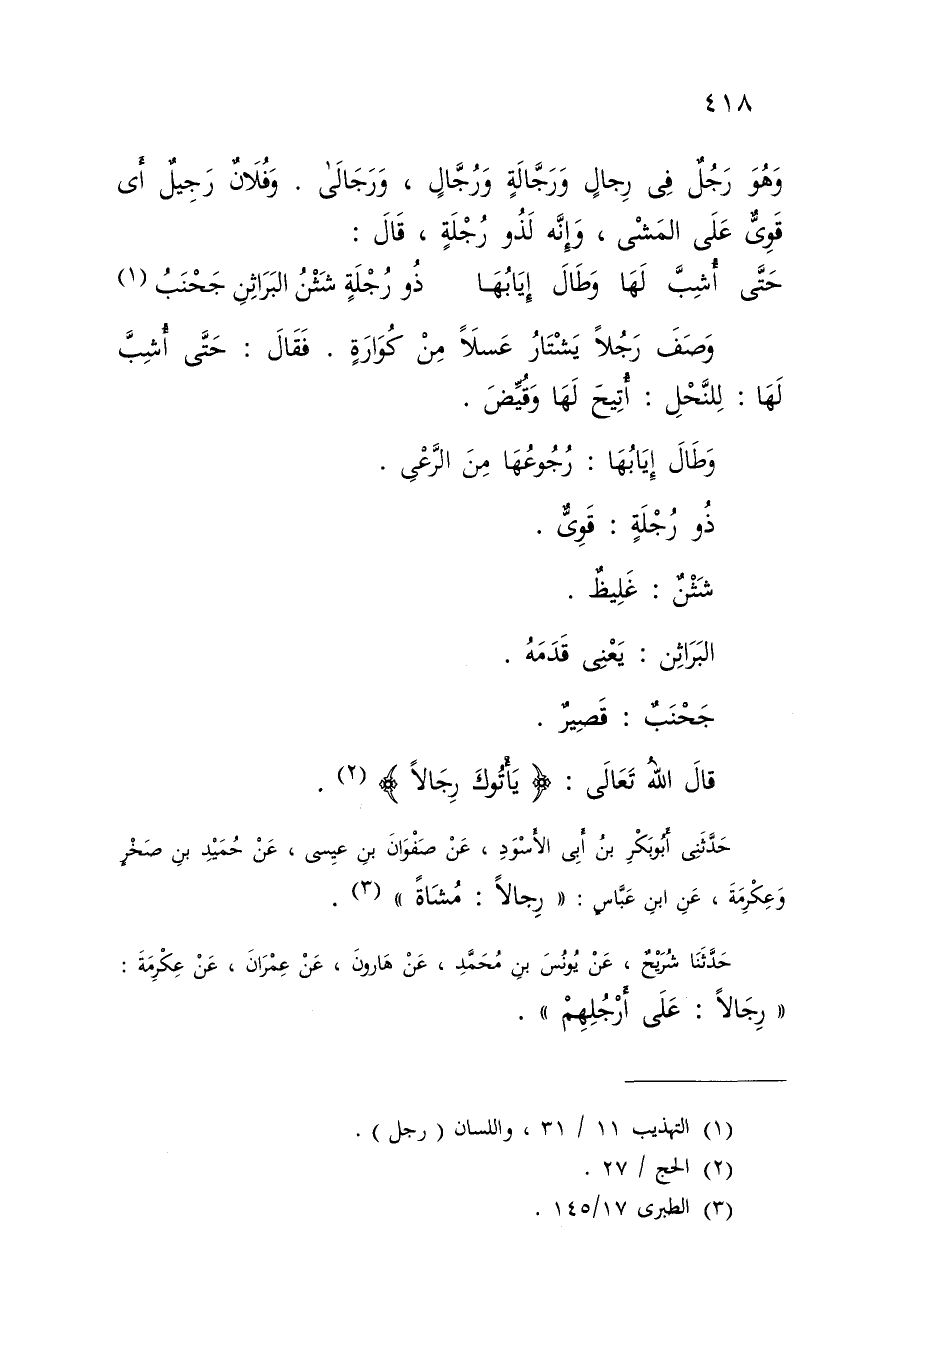 ٤١٨
وَهُوَ رَجُلٌ فِى رِجالٍ وَرَجَّالَةٍ وَرُجَّالٍ ، وَرَجَالَىٰ . وَفُلَانٌ رَجِيلٌ أَى
قَوِىٌّ عَلَى المَشْى ، وَإِنَّه لَذُو رُجْلَةٍ ، قَالَ :
حَتَّى أُشِبَّ لَهَا وَطَالَ إِيَابُهَـا ذُو رُجْلَةٍ شَثْنُ البَرَاثِنِ جَحْنَبُ (١)
وَصَفَ رَجُلاً يَشْتَارُ عَسلَاً مِنْ كُوَارَةٍ . فَقَالَ : حَتَّى أُشِبَّ
لَهَا : لِلنَّحْلِ : أُتِيحَ لَهَا وَقُيِّضَ .
وَطَالَ إِيَابُهَا : رُجُوعُهَا مِنَ الرَّعْىِ .
ذُو رُجْلَةٍ : قَوِىٌّ .
شَثْنٌ : غَلِيظٌ .
البَرَاثِن : يَعْنِى قَدَمَهُ .
جَحْنَبٌ : قَصِيرٌ .
قالَ اللهُ تَعَالَى : ﴿ يَأْتُوكَ رِجَالاً ﴾ (٢) .
حَدَّثَنِى أَبُوبَكْرِ بنُ أَبِى الأَسْوَدِ ، عَنْ صَفْوَانَ بنِ عيِسى ، عَنْ حُمَيْدِ بنِ صَخْرٍ
وَعِكْرِمَةَ ، عَنِ ابنِ عَبَّاسٍ : « رِجالاً : مُشَاةً » (٣) .
حَدَّثَنَا شُرَيْحٌ ، عَنْ يُونُسَ بنِ مُحَمَّدٍ ، عَنْ هَارونَ ، عَنْ عِمْرَانَ ، عَنْ عِكْرِمَةَ :
« رِجَالاً : عَلَى أَرْجُلِهِمْ » .
(١) التهذيب ١١ / ٣١ ، واللسان ( رجل ) .
(٢) الحج / ٢٧ .
(٣) الطبرى ١٤٥/١٧ .